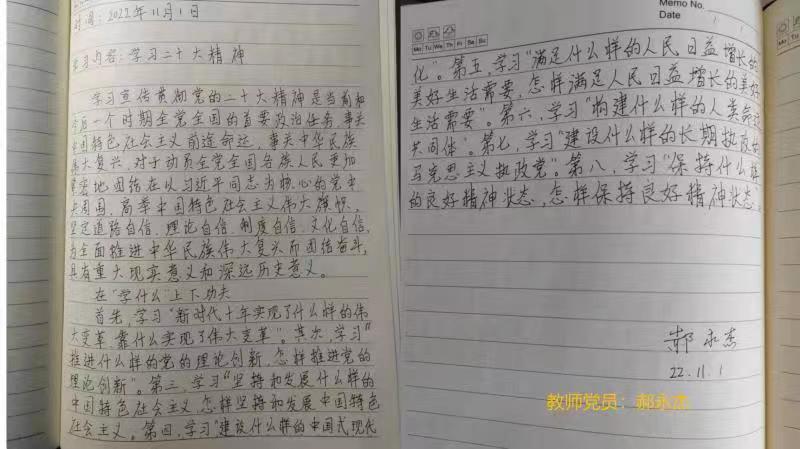 时间：2022年11月1日
学习内容：学习二十大精神
学习宣传贯彻党的二十大精神是当前和
今后一个时期全党全国的首要政治任务，事关
中国特色社会主义前途命运，事关中华民族
伟大复兴，对于动员全党全国各族人民更加
紧密地团结在以习近平同志为核心的党中
央周围，高举中国特色社会主义伟大旗帜，
坚定道路自信、理论自信、制度自信、文化自信，
为全面推进中华民族伟大复兴而团结奋斗，
具有重大现实意义和深远历史意义。
在“学什么”上下功夫
首先，学习“新时代十年实现了什么样的伟
大变革，靠什么实现了伟大变革”。其次，学习“
推进什么样的党的理论创新，怎样推进党的
理论创新”。第三，学习“坚持和发展什么样的
中国特色社会主义，怎样坚持和发展中国特色
社会主义。第四，学习“建设什么样的中国式现代
Memo No.
Date / /
Mo Tu We Th Fr Sa Su
化”。第五，学习“满足什么样的人民日益增长的
美好生活需要，怎样满足人民日益增长的美好
生活需要”。第六，学习“构建什么样的人类命运
共同体”。第七，学习“建设什么样的长期执政的
马克思主义执政党”。第八，学习“保持什么样
的良好精神状态，怎样保持良好精神状态。
郝永杰
22.11.1
教师党员：郝永杰